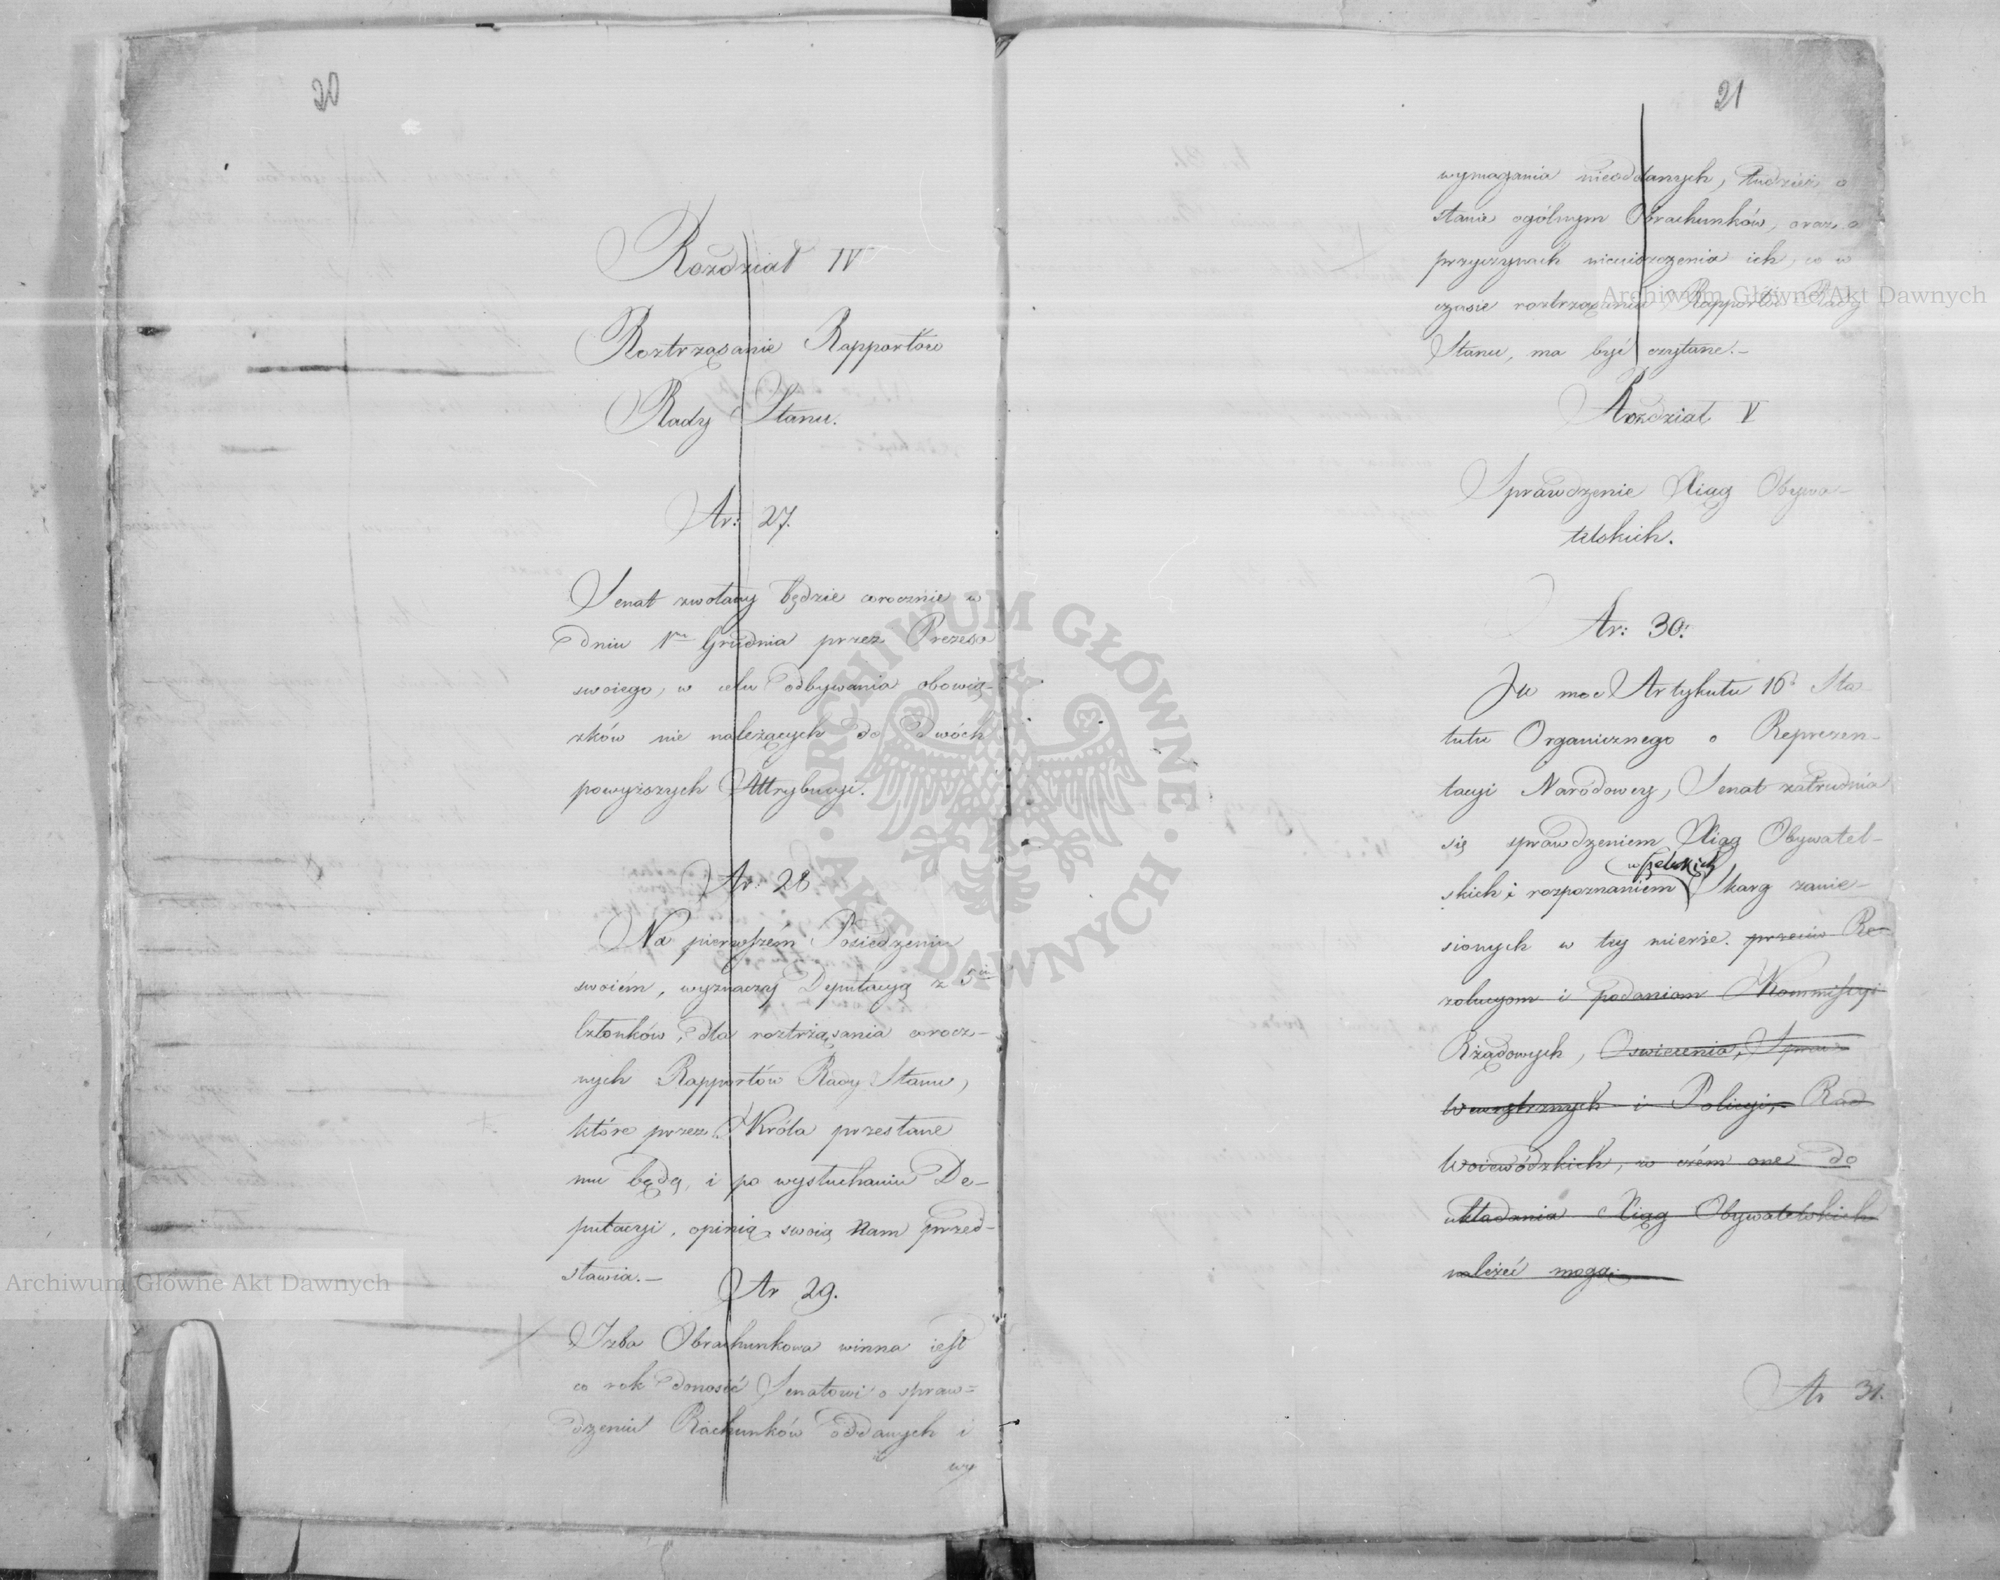 20
Rozdział IV
Roztrząsanie Rapportów
Rady Stanu.
Ar: 27.
Senat zwołany będzie corocznie w
dniu 1m Grudnia przez Prezesa
swoiego, w celu odbywania obowią-
zków nie należących do dwóch
powyższych Attrybucyi.
Ar: 28
Na pierwszém Posiedzeniu
swoiém, wyznaczy Deputacyą z 5iu
Członków, dla roztrząsania corocz-
nych Rapportów Rady Stanu,
które przez Króla przesłane
mu będą, i po wysłuchaniu De-
putacyi, opinią swoią Nam przed-
stawia.-
Ar 29.
Izba Obrachunkowa winna iest
co rok donosić Senatowi o spraw=
dzeniu Rachunków oddanych i
wy
21
wymagania nieoddanych, tudzież o
stanie ogólnym Obrachunków, oraz o
przyczynach nieuiszczenia ich, co w
czasie roztrząsania Rapportu Rady
Stanu, ma być czytane.-
Rozdział V
Sprawdzenie Xiąg Obywa-
telskich.
Ar: 30.
Na moc Artykułu 16 Sta
tutu Organicznego o Reprezen-
tacyi Narodowey, Senat zatrudnia
się sprawdzeniem Xiąg Obywatel-
wszelkich
skich i rozpoznaniem Skarg zanie-
sionych w tey mierze. przeciw Re-
zolucyom i podaniom Kommissyi
Rządowych, Oswiecenia, Spraw
Wewnętrznych i Policyi, Rad
Woiewódzkich, w czém one do
układania Xiąg Obywatelskich
należeć mogą.
Ar 31.
Archiwum Główne Akt Dawnych
Archiwum Główne Akt Dawnych
ARCHIWUM GŁÓWNE
AKT DAWNYCH